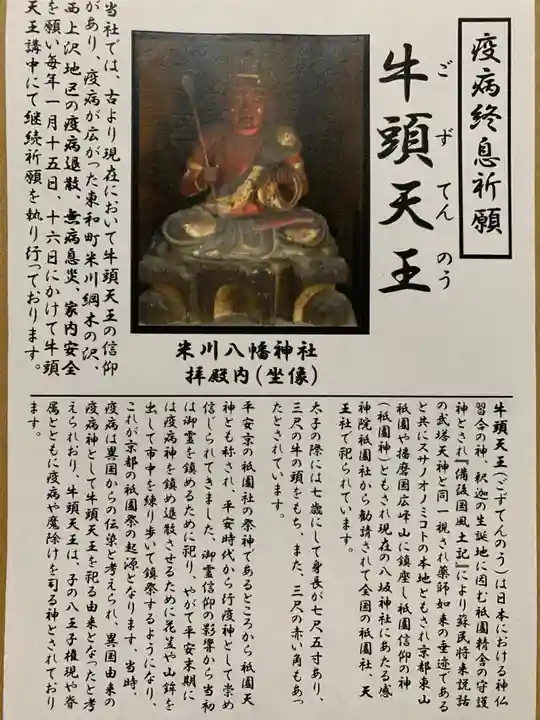 疫病終息祈願
牛頭天王
ごずてんのう
米川八幡神社
拝殿内(坐像)
当社では、古より現在において牛頭天王の信仰
があり、疫病が広がった東和町米川綱木の沢、
西上沢地区の疫病退散、無病息災、家内安全
を願い毎年一月十五日、十六日にかけて牛頭
天王講中にて継続祈願を執り行っております。
牛頭天王(ごずてんのう)は日本における神仏
習合の神、釈迦の生誕地に因む祇園精舎の守護
神とされ『備後国風土記』により蘇民将来説話
の武塔天神と同一視され薬師如来の垂迹である
と共にスサノオノミコトの本地ともされ京都東山
祇園や播磨国広峰山に鎮座し祇園信仰の神
(祇園神)ともされ現在の八坂神社にあたる感
神院祇園社から勧請されて全国の祇園社、天
王社で祀られています。
太子の際には七歳にして身長が七尺五寸あり、
三尺の牛の頭をもち、また、三尺の赤い角もあっ
たとされています。
平安京の祇園社の祭神であるところから祇園天
神とも称され、平安時代から行疫神として崇め
信じられてきました、御霊信仰の影響から当初
は御霊を鎮めるために祀り、やがて平安末期に
は疫病神を鎮め退散させるために花笠や山鉾を
出して市中を練り歩いて鎮祭するようになり、
これが京都の祇園祭の起源となります。当時、
疫病は異国からの伝染と考えられ、異国由来の
疫病神として牛頭天王を祀る由来となったと考
えられおり、牛頭天王は、子の八王子権現や眷
属とともに疫病や魔除けを司る神とされており
ます。